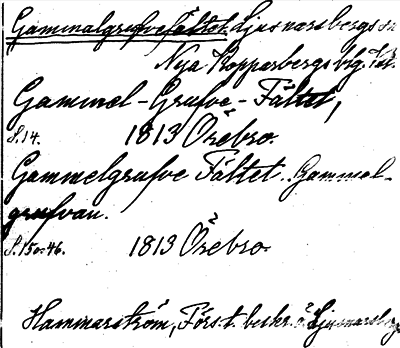 Gammalgrufvefältet, Ljusnarsbergs sn
Nya Kopparbergs blg. Vst.
Gammel-Grufve-Fältet,
S.14. 1813 Örebro.
Gammelgrufve Fältet. Gammel-
grufvan.
S.15 o. 46. 1813 Örebro.
Hammarström, Förs. t. beskr. ö. Ljusnarsberg